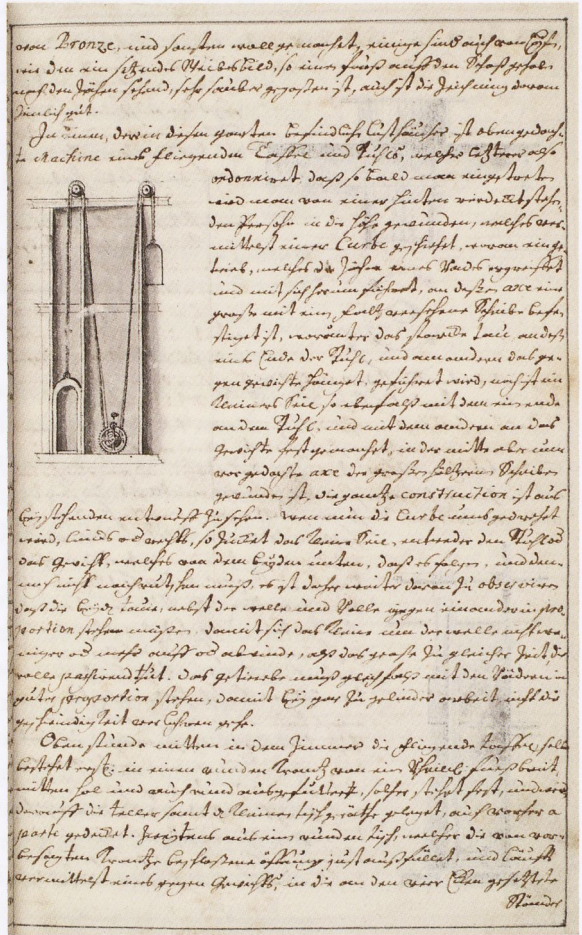 von Bronze, und sonsten woll gemachet, einige sind auch von
wie den ein sitzendes Weibsbild, so einen fuß auff den Schoß
nach den sehr sauber gegossen ist, auch ist die Zeichnung daran
zimlich gut.
In einem, der in diesem garten befindliche Lusthäuser ist obengedach-
te Machine eines fliegenden Taffel und Stuhls, welcher letzterer also
ordonniret, daß so bald man eingetreten
wird man von einer hinten stehen-
den Persohn in die Höhe gewunden, welches ver-
mittelst einer Curbe geschiehet, woran ein ge-
trieb, welches die Zähne eines Rades ergreiffet
und mit sich herum führet, an deßen axe eine
große mit ein falz versehene Scheibe befe-
stiget ist, worunter das tau, an deß
eine Ende der Stuhl, und am andern das ge-
gen gewichte hänget, geführet wird, noch ist ein
kleiners Seil, so ebenfalß mit dem ein ende
an dem Stuhl, und mit dem andern an das
Gewichte fest gemachet, in der mitte aber um
vor gedachte axe der großen höltzern Scheibe
gewunden ist, die gantze construction ist aus
beystehenden entwurff zu sehen. wen nun die Curbe umgedrehet
wird, lincks od rechts, so ziehet das kleine Seil, entweder den Stuhl od
das Gewicht, welches von den beyden unten, daß es folgen, und den-
noch nicht nachrutschen muß, es ist daher weiter daran zu observiren
daß die beyde taue, nebst der welle und Rolle gegen einander in pro-
portion stehen müßen, damit sich das kleine um der welle nicht we-
niger od mehr auff od abwinde, alß das große zu gleicher Zeit die
rolle passiret. das getriebe muß gleichfalß mit den Rädern in
guter proportion stehen, damit bey gar zu gelinder arbeit nicht die
geschwindigkeit verlohren gehe.
Oben stunde mitten in dem Zimmer die fliegende taffel, selbe
bestehet erstl. in einem runden Krantz von ein fueß breit,
mitten hol und auch rund ausgefüttert, solcher stehet fest, und wird
darauff die teller samt d. kleinen tisch geräthe geleget, auch vorher a
parte gedecket. Zweytens aus ein runden tisch, welcher die von vor-
besagten Krantze beschloßene öffnung just ausfüllet, und läufft
vermittelst eines gegen Gewichts, in die an den vier Ecken gesetzete
Ständer